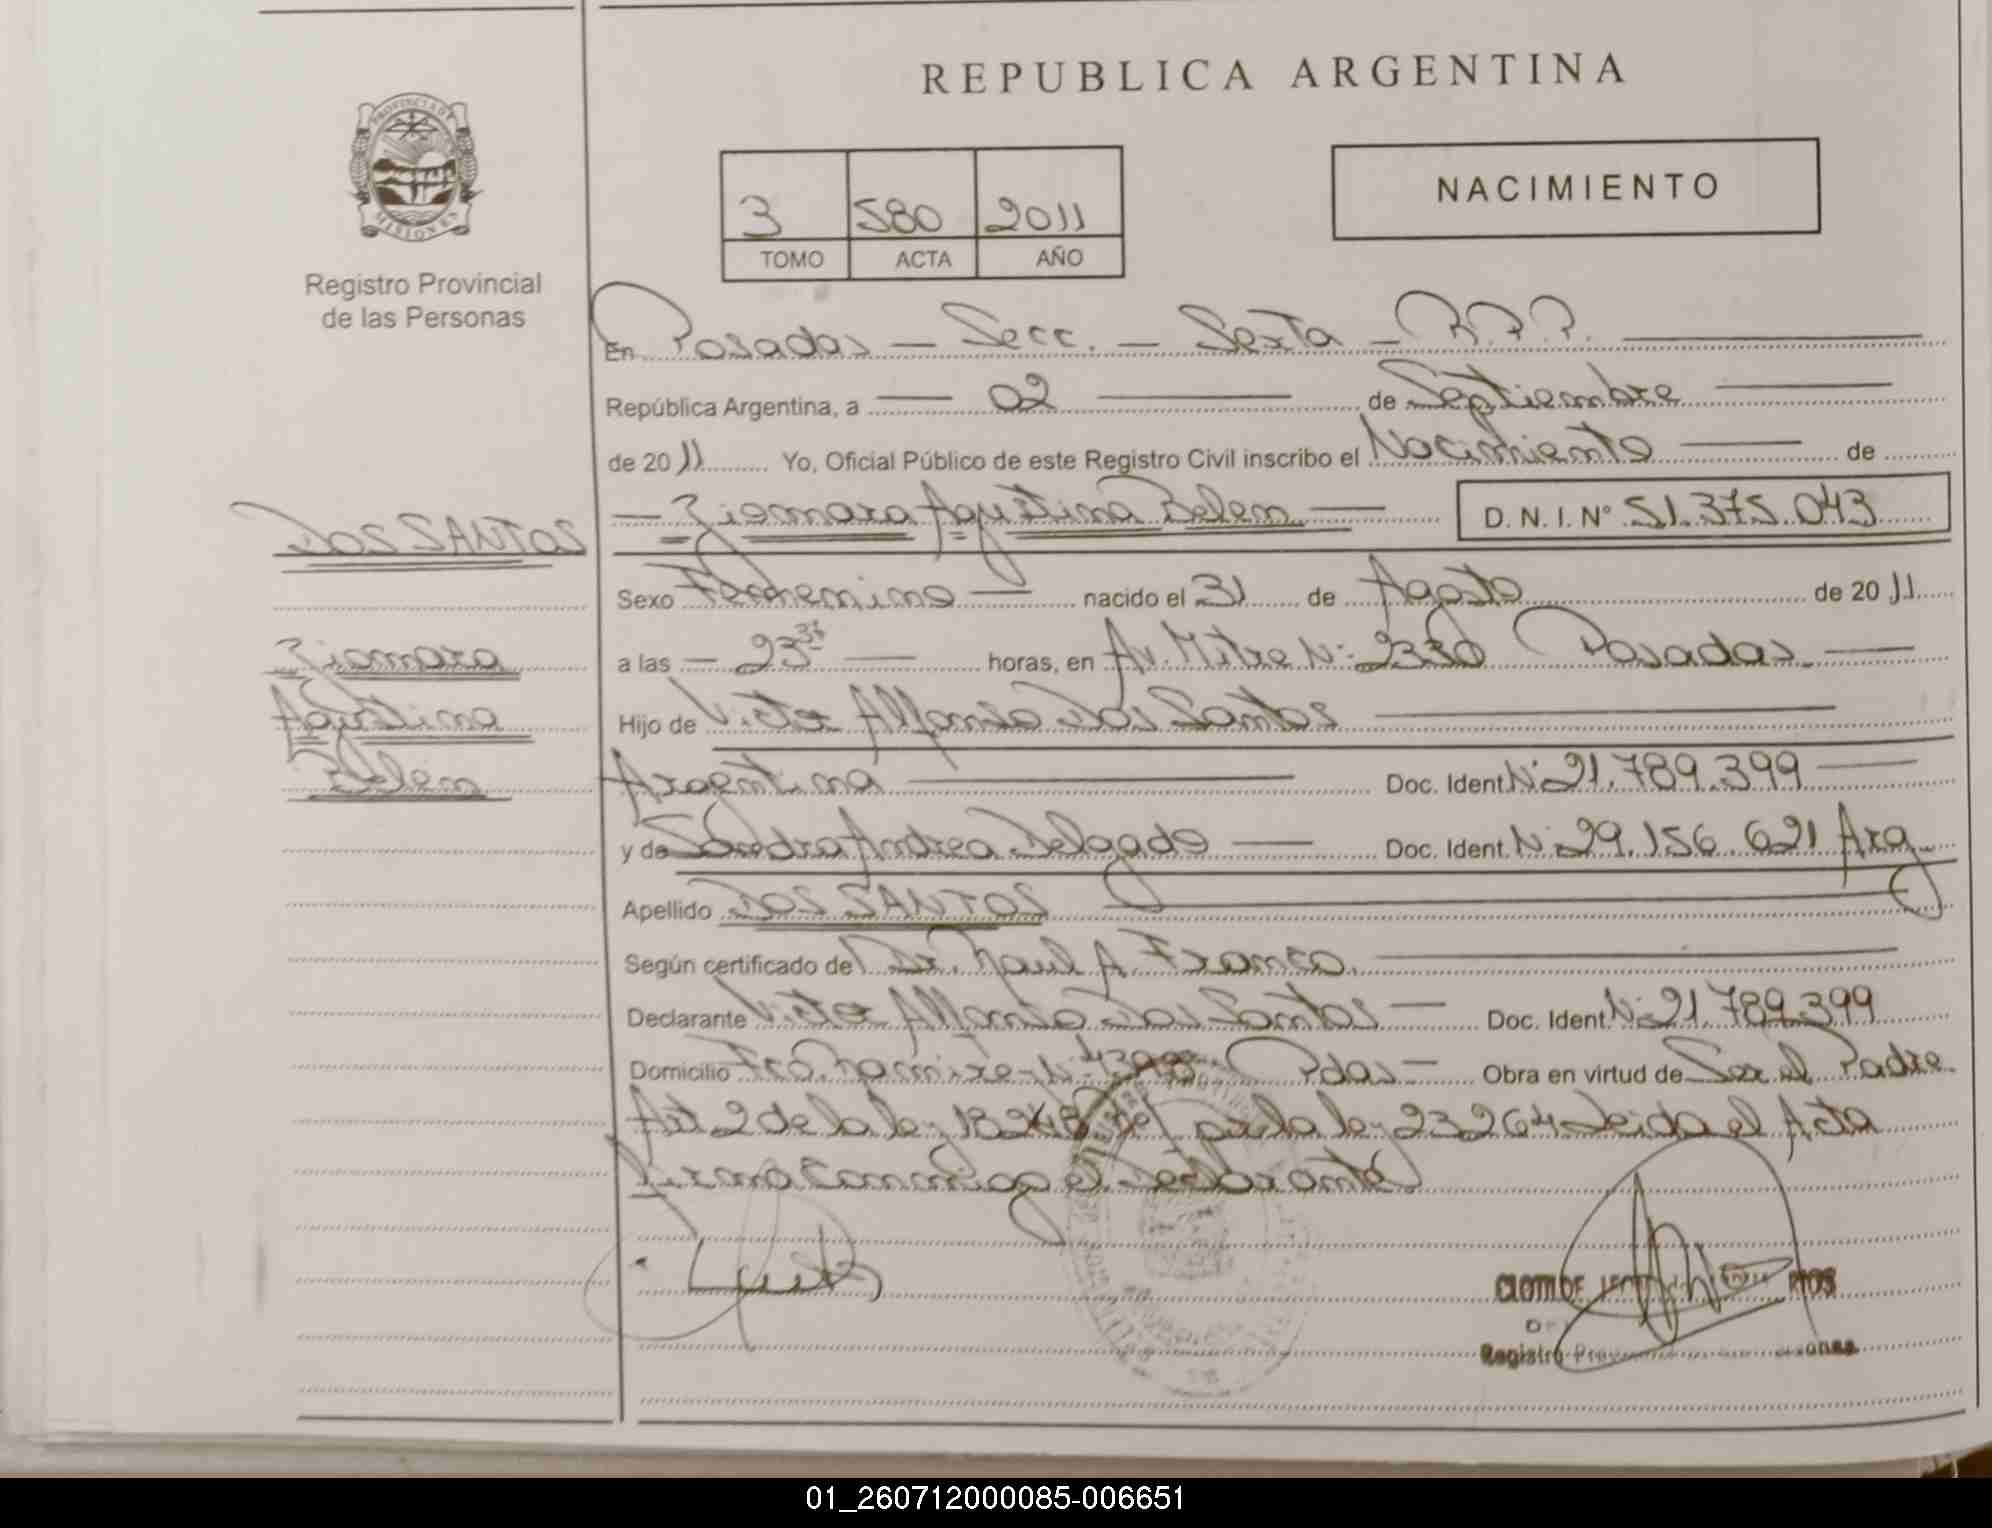 REPUBLICA ARGENTINA
PROVINCIA DE
MISIONES
Registro Provincial
de las Personas
3 580 2011
TOMO ACTA AÑO
NACIMIENTO
En Posadas - Secc. - Sexta - R.P.P.
República Argentina, a 02 de Septiembre
de 2011 Yo, Oficial Público de este Registro Civil inscribo el Nacimiento de
Agustina Belem D.N.I.Nº 51.375.043
DOS SANTOS
Sexo Femenino nacido el 31 de Agosto de 2011
a las 23 horas, en Av. Mitre Nº 2330 Posadas
Agustina
Hijo de Dos Santos
Belem
Argentina Doc. Ident. Nº 21.789.399
y de Sandra Andrea Delgado Doc. Ident. Nº 29.156.621 Arg
Apellido DOS SANTOS
Según certificado del Dr. Raul A. Franco
Declarante Dos Santos Doc. Ident. Nº 21.789.399
Domicilio Pdas Obra en virtud de Ser el Padre
Art 2 de la ley 18248 ley 23264 Leida el Acta
Registro